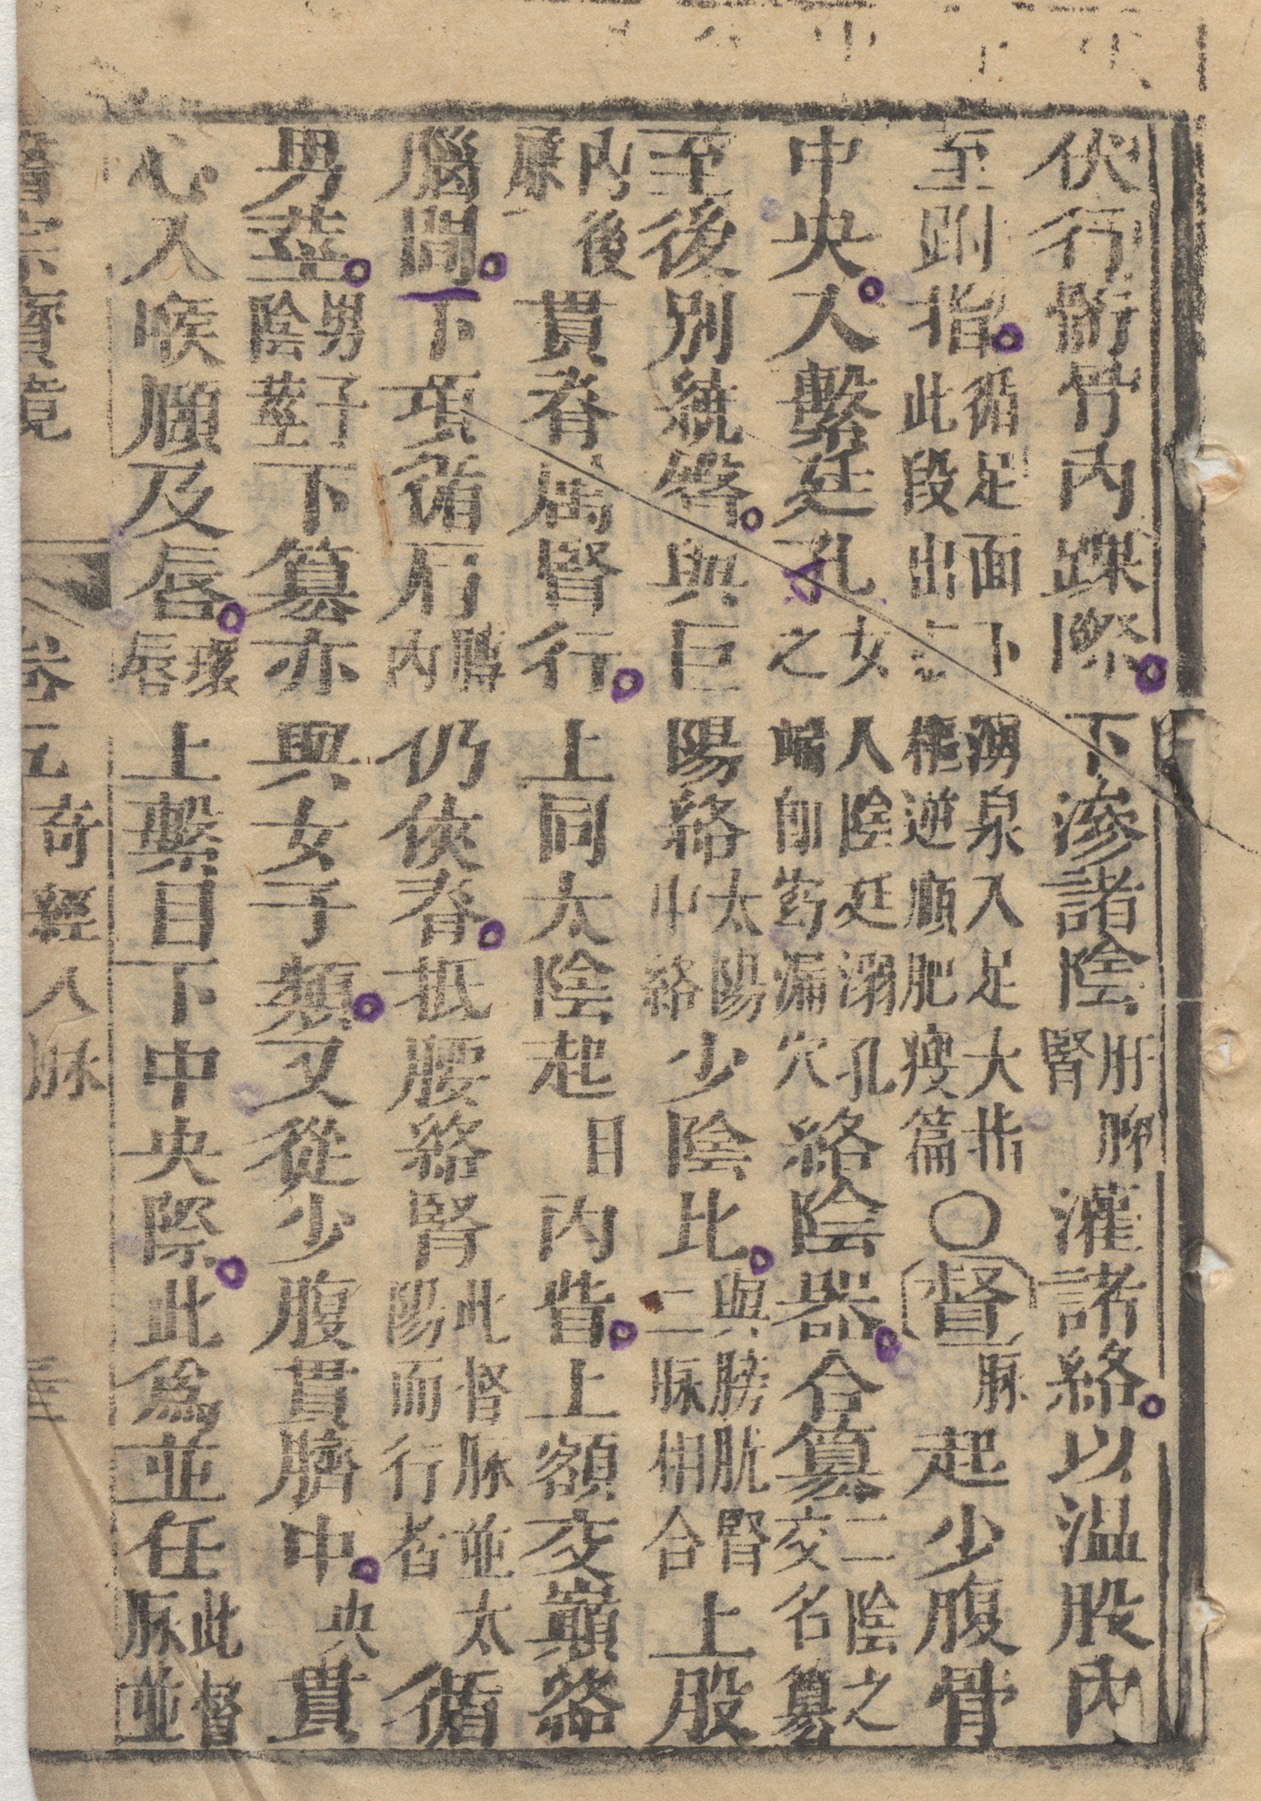 伏行䯒骨內踝際下滲諸陰肝脾腎灌諸絡以温股內
至跗指循足面下湧泉入足大指此段出樞逆順肥瘦篇〇督脉起少腹骨
中央入繫廷孔女人陰廷溺孔之端卽窈漏穴絡陰器合篡二陰之交名篡
至後別繞臀與巨陽絡太陽中絡少陰比與膀胱腎二脉相合上股
內後廉貫脊属腎行上同太陰起目內眥上額交巔絡
腦間下項循肩膊內仍俠脊抵腰絡腎此督脉並太陽而行者循
男莖男子陰莖下篡亦與女子類又從少腹貫臍中央貫
心入喉頤及唇環唇上繫目下中央際此爲並任此督脉並
醫宗寶鏡 卷五奇經八脉